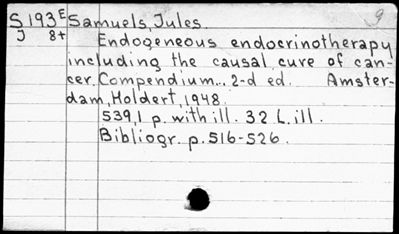 S193E Samuels, Jules. 9
J 8+ Endogeneous endocrinotherapy
including the causal cure of can-
cer. Compendium... 2-d ed. Amster-
dam, Holdert, 1948.
539,1 p. with ill. 32 L. ill.
Bibliogr. p. 516-526.